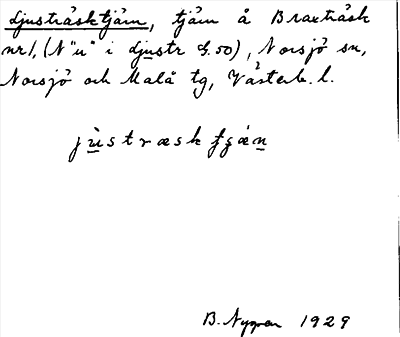 Ljusträsktjärn, tjärn å Braxträsk
nr 1, (N "u" i djustr g. 50), Norsjö sn,
Norsjö och Malå tg, Västerb. l.
jùstræskʃgæ̀n
B. Nygren 1929